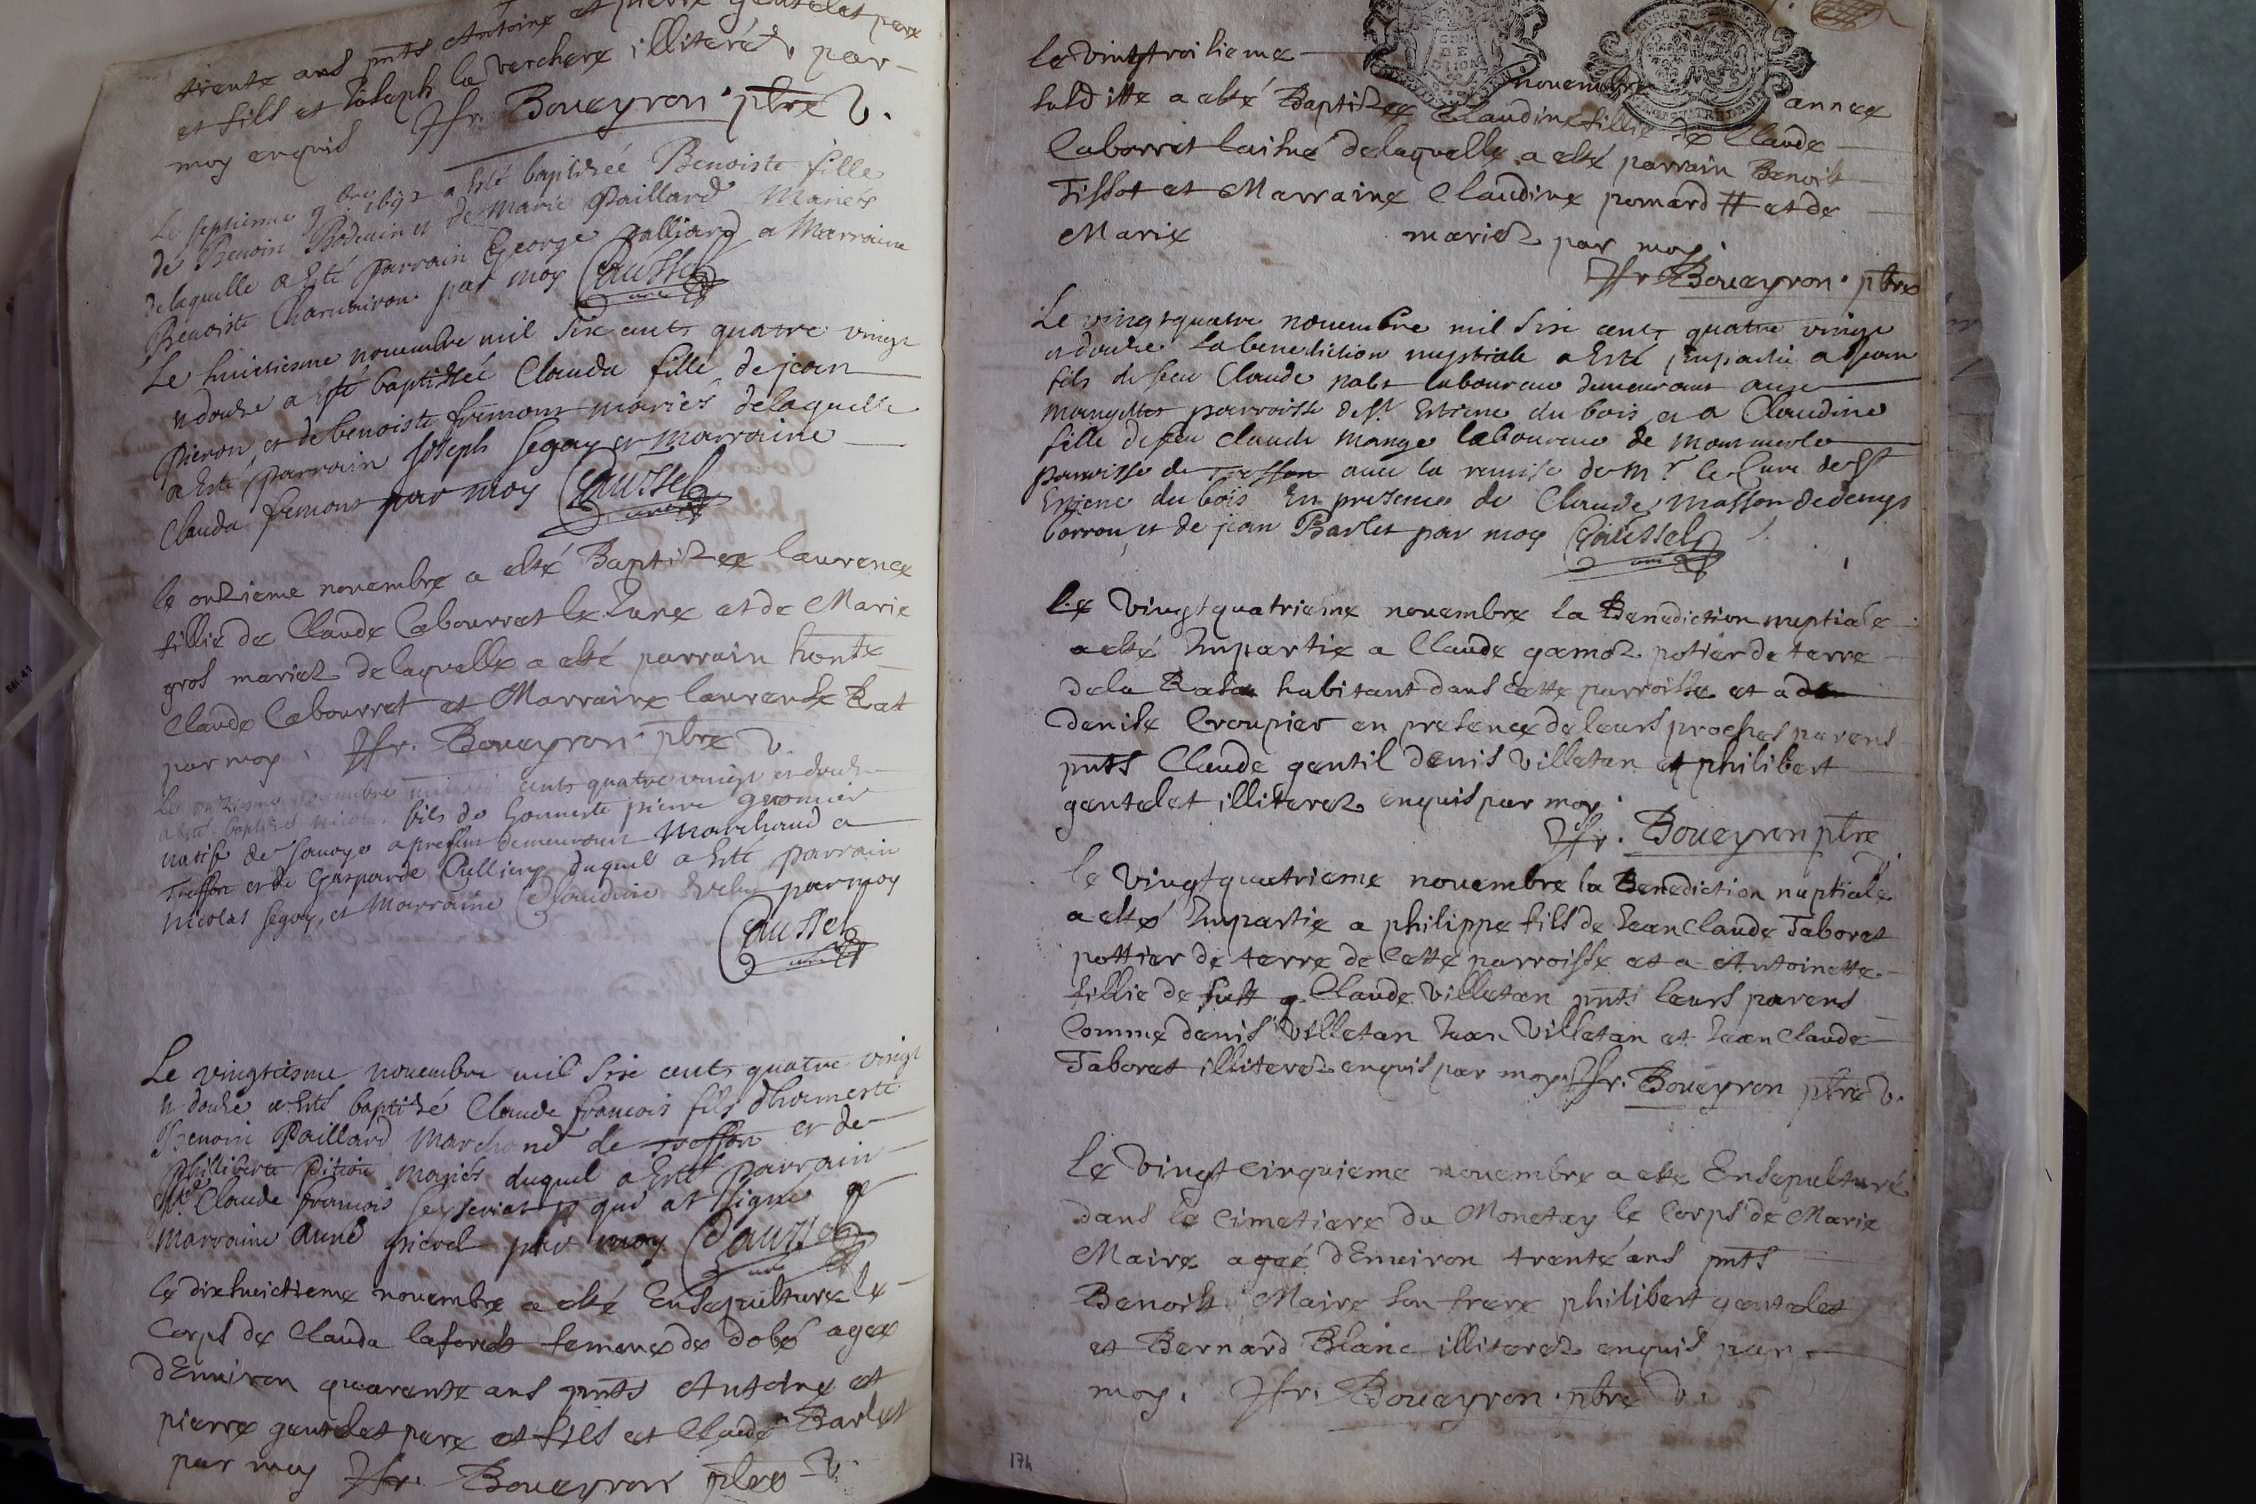 trente ans pnts Antoine et pierre gentelet pere
et fils et Joseph la verchere illiteréz par
moy enquis Jfr. Boueyron ptre V.
Le septieme 9bre 1692 a esté baptisée Benoiste fille
de Benoin Boduin et de Marie Paillard Mariés
delaquelle a Esté parrain George palliard a Marraine
Benoiste par moy Caussel curé
Le huictiesme nouembre mil Six cents quatre vingt
et douze a Esté baptisée Clauda fille de jean
pieron et de benoiste fremont mariés delaquelle
a Esté parrain Joseph Segay et marraine
Clauda fremont par moy Caussel curé
le onzieme nouembre a esté Baptizee laurence
fillie de Claude Cabourret le June et de Marie
gros mariez delaquelle a esté parrain honte
Claude Cabourret et Marraine laurense Rat
par moy. Jfr. Boueyron ptre V.
Le onziesme nouembre cents quatre vingt et douze
a Esté baptisé Nicolas fils de honneste pierre
natif de Sauoye apresent demeurant Marchand a
Treffon et de Gasparde duquel a Esté parrain
Nicolas Segay, et Marraine Claudine par moy
Caussel curé
Le vingtiesme nouembre mil Six cents quatre vingt
et douze a Esté baptisé Claude francois fils d'honneste
Benoin Paillard Marchand de treffon et de
Philliberte pition mariés duquel a Esté Parrain
Sr. Claude francois qui at signé et
marraine Anne par moy Caussel curé
le dixhuictieme nouembre a esté Ensepulture le
Corps de Clauda laforest femme de dobé agee
d'Enuiron quarente ans pnts Antoine et
pierre gentelet pere et fils et Claude Barlet
par moy Jfr. Boueyron ptre V.
le Vingttroisieme nouembre annee
susditte a esté Baptizee Claudine fillie de Claude
Cabourret laisné delaquelle a esté parrain Benoist
Tissot et Marraine Claudine pomard # et de
Marie mariez par moy.
Jfr Boueyron. ptre
Le vingt quatre nouembre mil Six cents quatre vingt
et douze La benediction nuptiale a Esté Impartie a Jean
fils de feu Claude Nalet laboureur demeurant aux
mangettes parroisse de St Estiene du bois et a Claudine
fille de feu Claude Mange laboureur de Montmerle
parroisse de treffon auec la remise de Mr le Curé de St
Estiene du bois En presence de Claude Masson de denys
borron, et de jean Barlet par moy Caussel curé
le Vingtquatrieme nouembre la Benediction nuptiale
a esté Impartie a Claude gamoz potier de terre
dela Rasa habitant dans Cette parroisse et a
denise Croupier en presence de leurs proches parens
pnts Claude gentil denis Villetan et philibert
gentelet illiterez enquis par moy.
Jfr. Boueyron ptre
V.
le Vingtquatrieme nouembre la Benediction nuptiale
a esté Impartie a philippe fils de Jean Claude Taboret
pottier de terre de Cette parroisse et a Antoinette
fillie de fust q. Claude Villetan pnts leurs parens
Comme denis Villetan Jean Villetan et Jean Claude
Taboret illiterez enquis par moy. Jfr. Boueyron ptre V.
le Vingt Cinquieme nouembre a este Ensepulturé
dans le Cimetiere du Monetay le Corps de Marie
Maire ageé d'Enuiron trente ans pnts
Benoist Maire son frere philibert gentelet
et Bernard Blanc illiterez enquis par
moy. Jfr. Boueyron. ptre V.
174